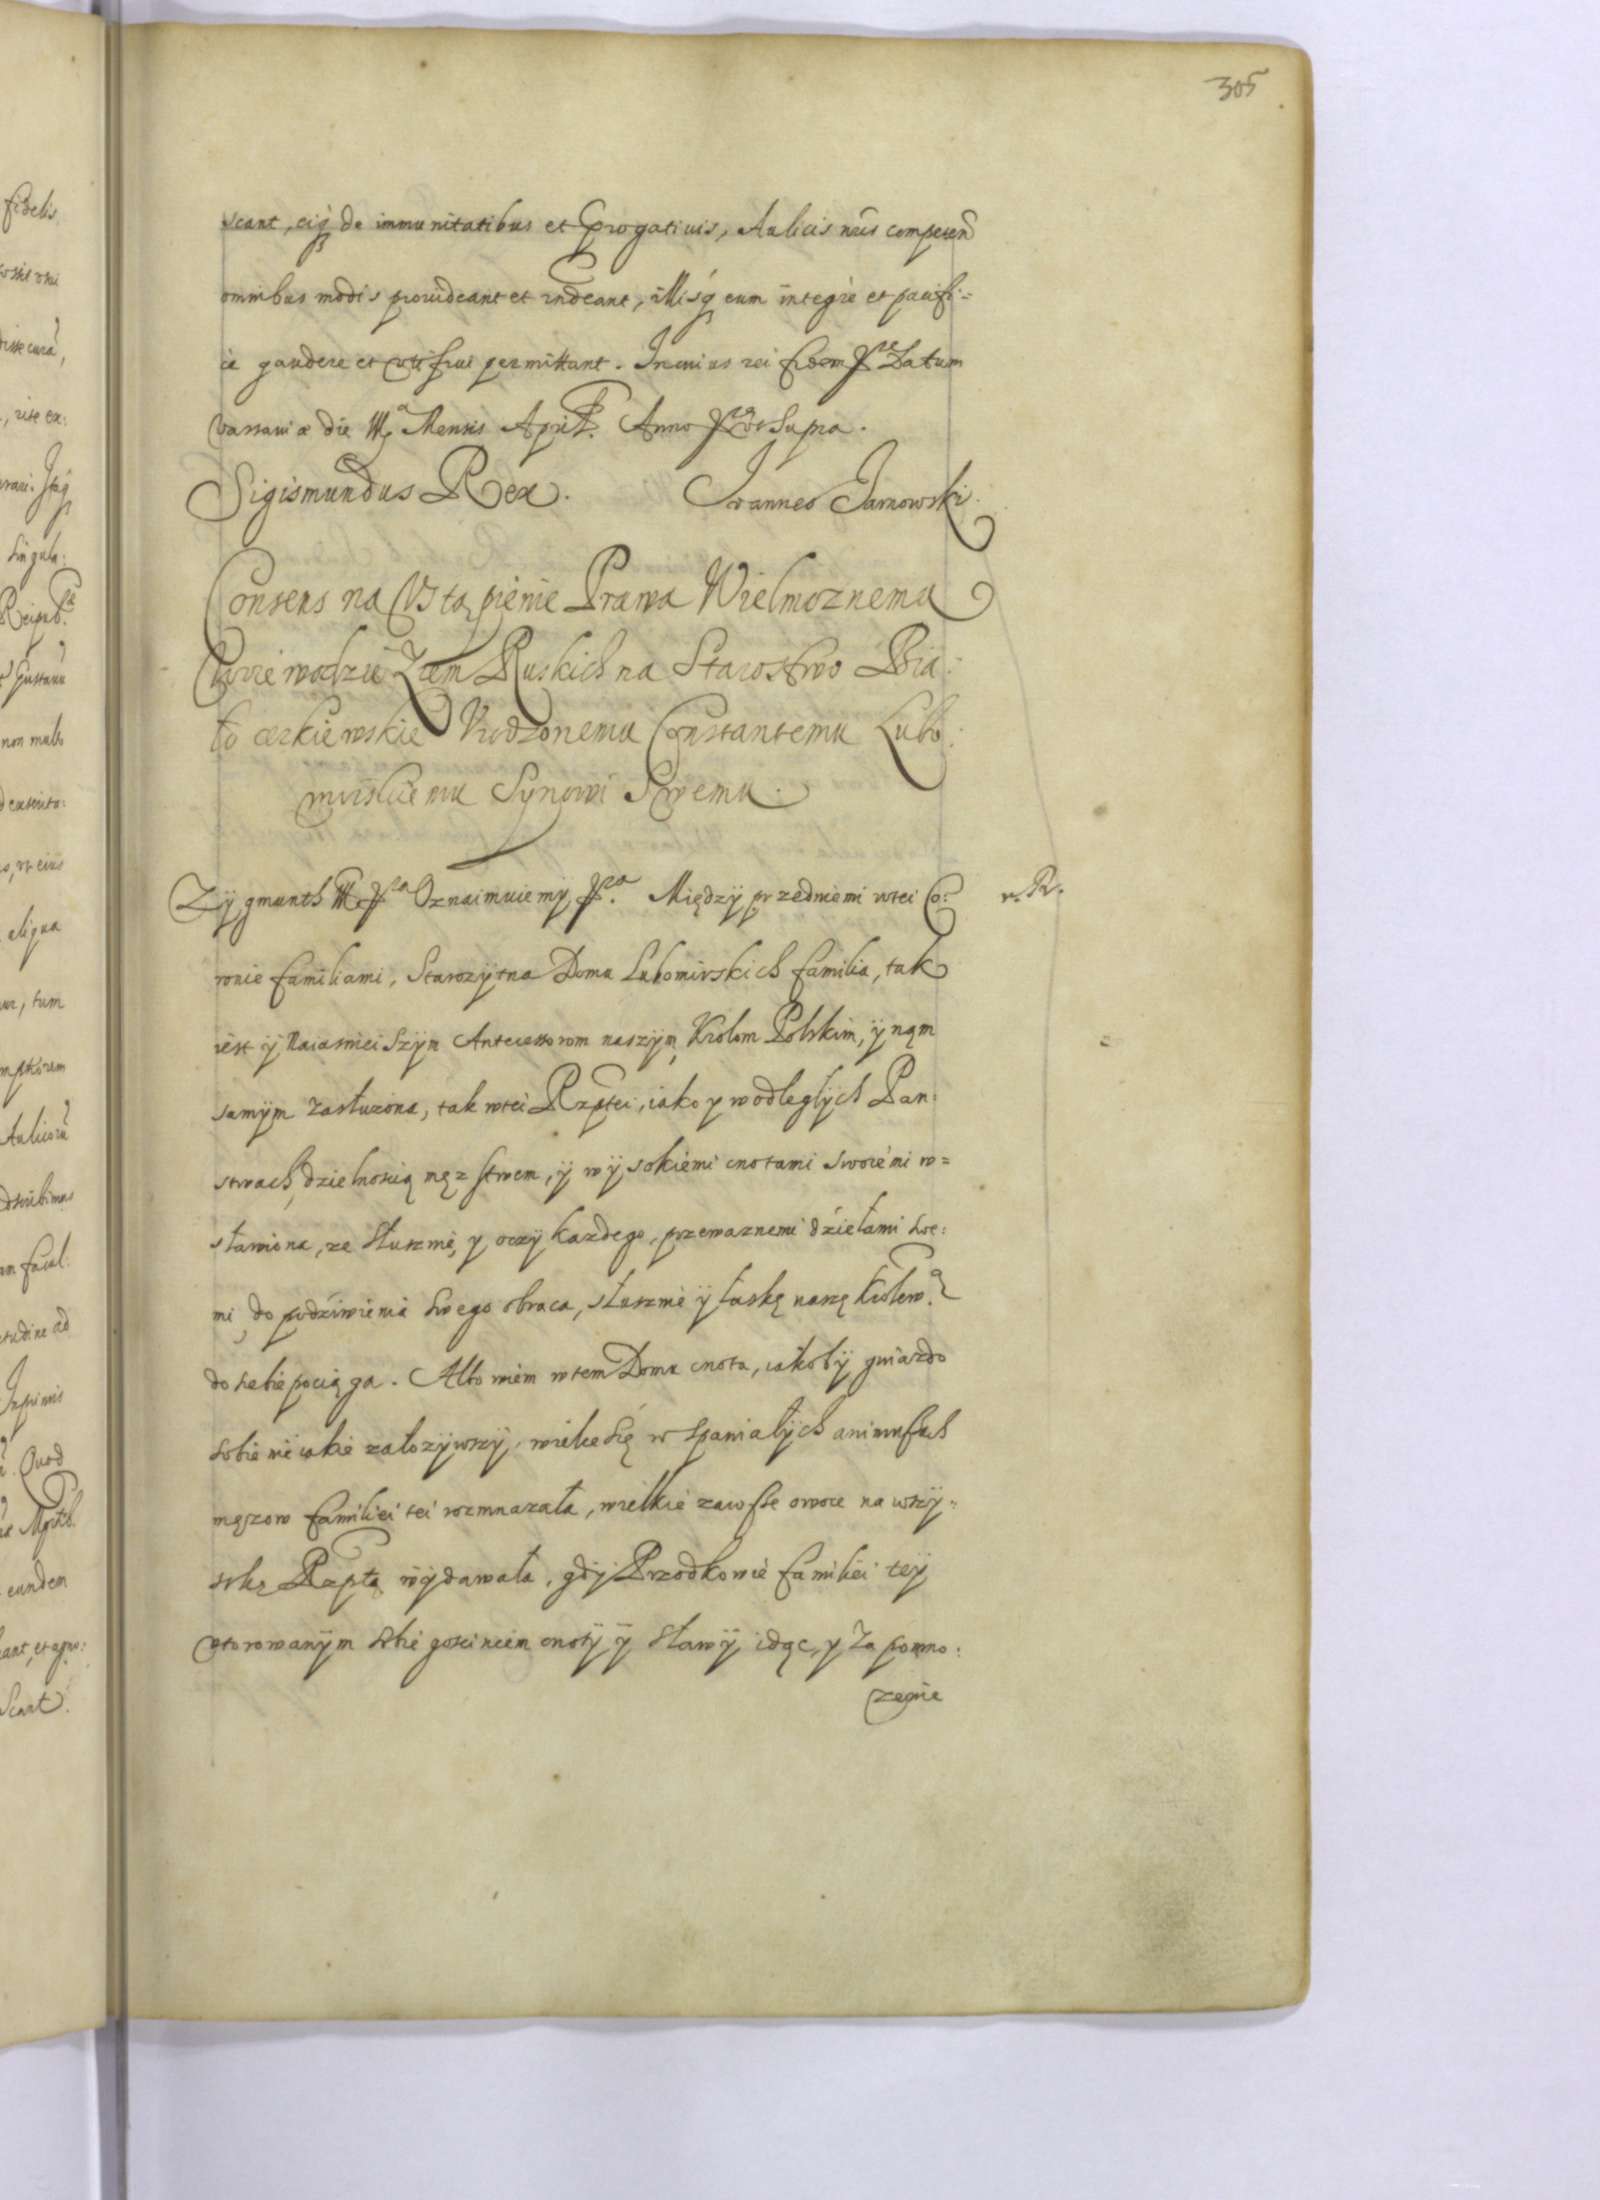 305
scant, eiq de immunitatibus et Prerogativis, Aulicis nris competen
omnibus modis provideant et videant, illisq eum integre et pacifi=
ce gaudere et uti frui permittant. In cuius rei fidem Datum
Varsaviæ die Mensis April. Anno ut Supra.
Sigismundus Rex. Joannes Jarnowski.
Consens na Vstąpienie Prawa Wielmoznemu
Woiewodzie Ziem Ruskich na Starostwo Bia:
ło cerkiewskie Vrodzonemu Constantemu Lubo:
mirskiemu Synowi Swemu.
Zygmunth III Oznaimuiemy, Między przedniemi wtei Co:
ronie familiami, Starozytna Domu Lubomirskich familia, tak
iest y Naiasniei Szym Antecessorom naszym, Krolom Polskim, y nąm
samym zasłuzona, tak wtei Rzptei, iako y wodległych Pan:
stwach, dzielnoscią męzstwem, y wysokiemi cnotami swoiemi w=
sławiona, ze słusznie, y oczy kazdego, przewaznemi dziełami swe:
mi do podziwienia swego obraca, słusznie y łaskę naszę Krolew.ą
do siebie pociąga. Albowiem wtem Domu cnota, iakoby gniazdo
sobie nieiakie załozywszy, wielce się w Spaniałych animuszach
męzow familiei tei rozmnazała, wielkie zawsze owoce na wszy=
stkę Rzptą wydawała, gdy Przodkowie familiei tey
vtorowanym goscincem cnoty y sławy idąc, y Za pomno:
zenie
r. R.
fidelis
rite ex:
Singula:
non multo
aliqua
tum
Inprimis
Quod
eundem
Scant.